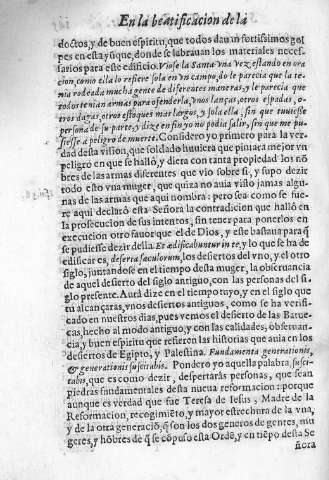 En la beatificacion de la
doctos, y de buen espiritu, que todos dauan fortissimos gol
pes en esta yunque, donde se labrauan los materiales neces-
sarios para este edificio. Viose la Santa vna vez, estando en ora
cion, como ella lo refiere sola en vn campo, do le parecia que la te-
nia rodeada mucha gente de diferentes maneras, y le parecia que
todos tenian armas para ofenderla, vnos lanças, otros espadas, o-
tros dagas, otros estoques muy largos, y sola ella, sin que tuuiesse
persona de su parte, y dize en fin yo no podia salir, sin que me pu-
siesse a peligro de muerte. Considero yo primero para la ver-
dad desta vision, que soldado huuiera que pintara mejor vn
peligro en que se halló, y diera con tanta propiedad los nõ
bres de las armas diferentes que vio sobre si, y supo dezir
todo esto vna muger, que quiza no auia visto jamas algu-
nas de las armas que aqui nombra: pero sea como se fue-
re aqui declaró esta Señora la contradicion que halló en
la prosecucion de sus intentos, sin tener para ponerlos en
execucion otro fauor que el de Dios, y este bastaua para q̃
se pudiesse dezir della. Et ædificabuntur in te, y lo que se ha de
edificar es, deserta sæculorum, los desiertos del vno, y el otro
siglo, juntandose en el tiempo desta muger, la obseruancia
de aquel desierto del siglo antiguo, con las personas del si-
glo presente. Aurá dize en el tiempo tuyo, y en el siglo que
tu alcançaras, vnos desiertos antiguos, como se ha verifi-
cado en nuestros dias, pues vemos el desierto de las Batue-
cas, hecho al modo antiguo, y con las calidades, obseruan-
cia, y buen espiritu que refieren las historias que auia en los
desiertos de Egipto, y Palestina. Fundamenta generationis,
& generationis suscitabis. Pondero yo aquella palabra, susci-
tabis, que es como dezir, despertarás personas, que sean
piedras fundamentales desta nueua reformacion: porque
aunque es verdad que fue Teresa de Iesus, Madre de la
Reformacion, recogimiẽto, y mayor estrechura de la vna,
y de la otra generaciõ, q̃ son los dos generos de gentes, mu
geres, y hõbres de q̃ se cõpuso esta Ordẽ, y en tiẽpo desta Se
ñora